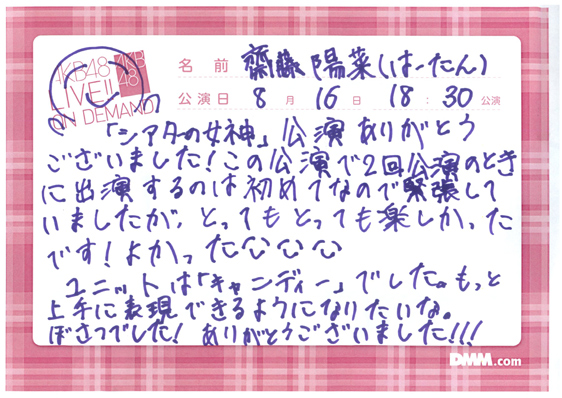 AKB48
LIVE!!
ON DEMAND
AKB
48
名前 齋藤陽菜(はーたん)
公演日 8月16日 18:30公演
「シアターの女神」公演ありがとう
ございました!この公演で2回公演のとき
に出演するのは初めてなので緊張して
いましたが、とってもとっても楽しかった
です!よかった
ユニットは「キャンディー」でした。もっと
上手に表現できるようになりたいな。
ぼさつでした!ありがとうございました!!!
DMM.com